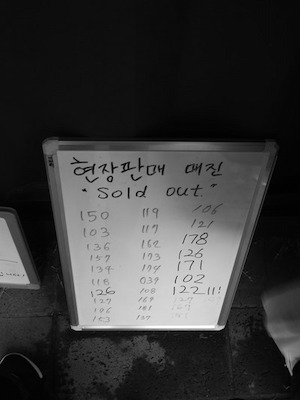 현장판매 매진
"Sold out."
150 119 106
103 117 121
136 162 178
157 193 126
134 177 171
118 039 102
126 108 122!!!
127 169
146 181
153 137